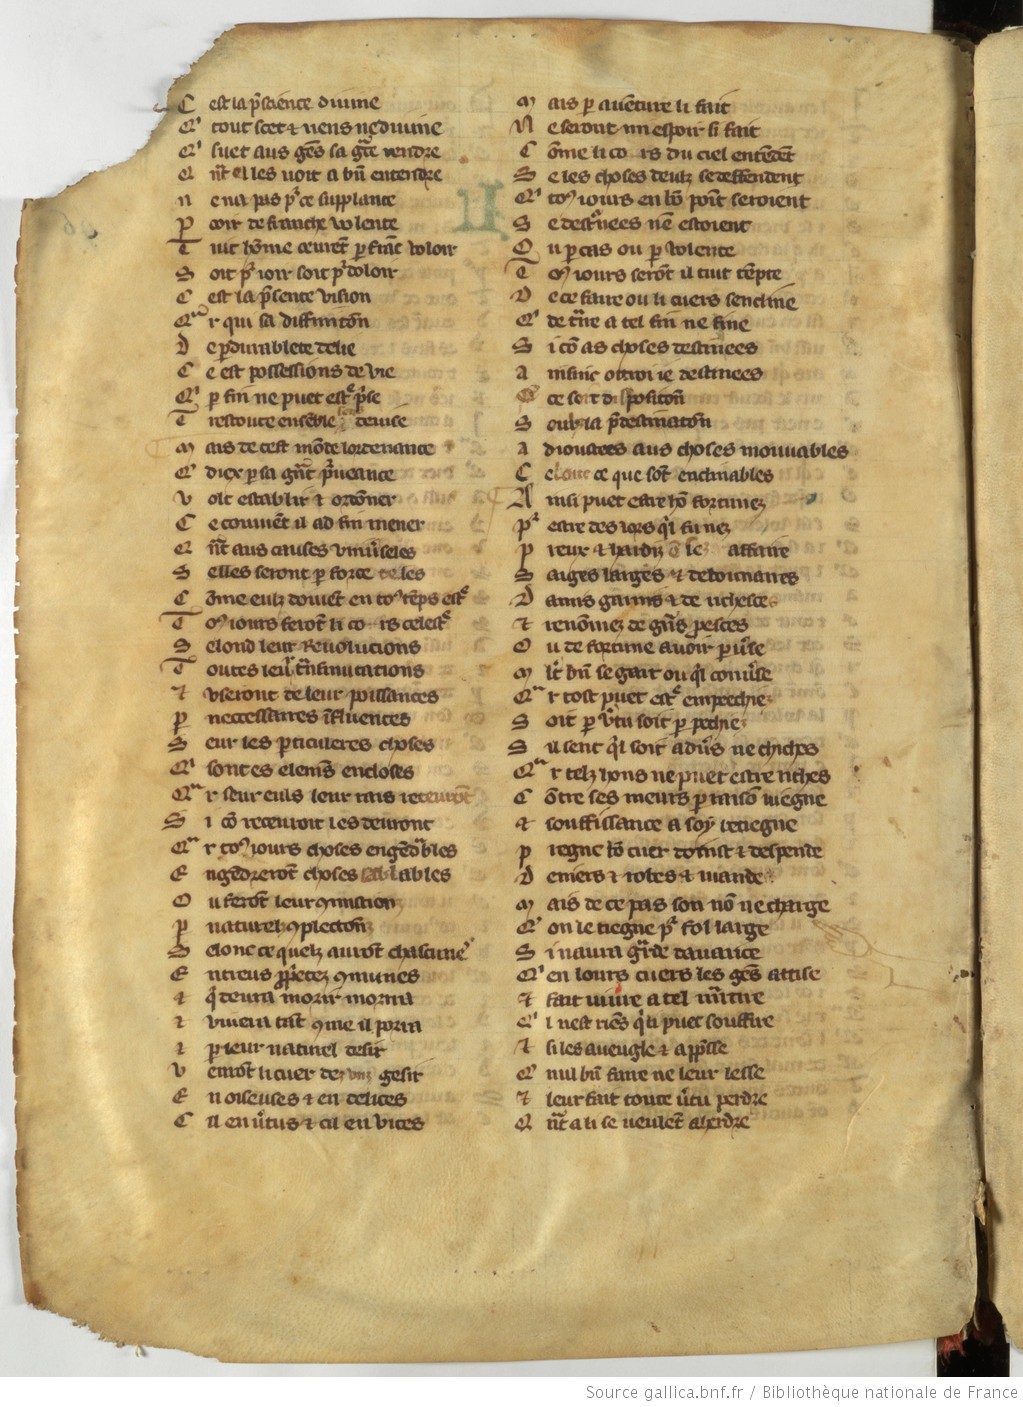 C est la p̃science diuine
Q' tout scet ⁊ riens ne diuine
Q' siuet aus gẽs sa gr̃ce rendre
Q nt̃ elles uoit a bñ entendre
n e na pas p̃ ce supplante
P ooir de franche volente
T uit hõme œurẽt p franc voloir
S oit p' ioir soit p' doloir
C est la p̃sente vision
Qͣ r qui sa diffinitõn
D e pdurablete delie
C e est possessions de vie
Q' p fin ne puet estr̃ p'se
T restoute ensẽble deuise
M ais de cest mõde lordenance
Q' diex p sa gñt p'ueance
V olt establir ⁊ ordõner
C e couuẽt il ad fin mener
Q nt̃ aus causes vniũseles
S elles seront p force teles
C õme eulz doiuẽt en to' tẽps estr̃
T o' iours ferõt li co rs celestr̃
S elond leur Reuolucions
T outes leurs tñsmutacions
⁊ vseront de leur poissances
P neccessaires ĩfluences
S eur les pticuleres choses
Q' sont es elemẽs encloses
Qͣ r seur euls leur rais receuront
S i cõ receuoir les deuront
Qͣ r to' iours choses engẽdrables
E ngẽdrerõt choses sẽblables
O u ferõt leur ꝯmixtion
P naturelz ꝯplectiõn
S elonc ce quelz aurõt chascune
E ntreus pp̃rietez ꝯmunes
⁊ q̃ deura morir morra
⁊ viura tãt ꝯme il porra
⁊ p leur naturel desir
V enrõt li cuer dez vnz gesir
E n oiseuses ⁊ en delices
C il en ũtus ⁊ cil en vices
M ais p auenture li fait
N e seront mi espoir si fait
C õme li co rs du ciel entẽdẽt
S e les choses deulz se deffendent
Q' to' iours en bõ point seroient
S e destr̃nees nẽ estoient
O u p cas ou p volente
T o' iours serõt il tuit tẽpte
D e ce faire ou li cuers sencline
Q' de tr̃ire a tel fin ne fine
S i cõ as choses destinees
A insinc ottroi ie destinees
Q ce soit dispositõn
S oubz la p̃destinatõn
A dioustees aus choses mouuables
C elonc ce que sõt enclinables
A insi puet estre hõ fortunez
P' estre des lors q̃l fu nez
P reux ⁊ hardiz e le affaire
S aiges larges ⁊ debonnaires
D amis garnis ⁊ de richesces
⁊ renõmez de grãs proesces
O u de fortune auoir puerse
M lt̃ bñ se gart ou q̃l conũse
Qͣ r tost puet estr̃ empeechiez
S oit p ũtu soit p pechiez
S il sent q̃l soit aduers ne chiches
Qͣ r telz hons ne puet estre riches
C õtre ses meurs p raisõn viegne
⁊ souffissance a soy retiegne
P regne bõ cuer doint ⁊ despende
D eniers ⁊ robes ⁊ viande
M ais de ce pas son nõ ne charge
Q' on le tiegne p' fol large
S i naura gr̃de dauarice
Q' en lours cuers les gẽs attise
⁊ fait uiure a tel mr̃tire
Q' l nest riẽs q̃ li puet souffire
⁊ si les aueugle ⁊ app̃sse
Q' nul bñ faire ne leur lesse
⁊ leur fait toute ũtu perdre
Q nt̃ a li se veulẽt aherdre